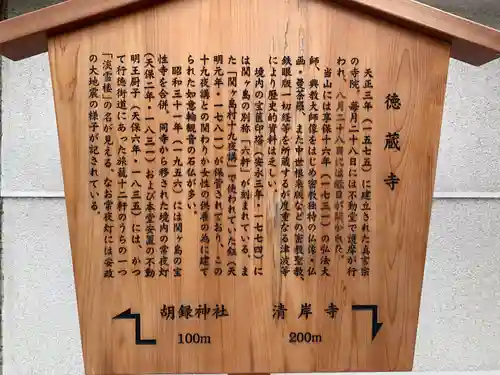 徳蔵寺
天正三年(一五七五)に建立された真言宗
の寺院。毎月二十八日には不動堂で護摩が行
われ、八月二十八日には縁日が開かれた。
当山には享保十六年(一七三一)の弘法大
師、興教大師像をはじめ密教独特の仏像・仏
画・曼荼羅、また中世根来版などの密教聖教、
鉄眼版一切経等を所蔵するが度重なる津波等
により歴史的資料は乏しい。
境内の宝篋印塔(安永三年・一七七四)に
は関ヶ島の別称「六軒」が刻まれている。ま
た「関ヶ島村十九夜講」で使われていた鉦(天
明元年・一七八一)が保管されており、この
十九夜講との関わりか女性の供養の為に建て
られた如意輪観音の石仏が多い。
昭和三十一年(一九五六)には関ヶ島の宝
性寺を合併し、同寺から移された境内の常夜灯
(天保二年・一八三一)および本堂安置の不動
明王厨子(天保六年・一八三五)には、かつ
て行徳街道にあった旅籠十二軒のうちの一つ
「淡雪楼」の名が見える。なお常夜灯には安政
の大地震の様子が記されている。
胡録神社
100m
清岸寺
200m